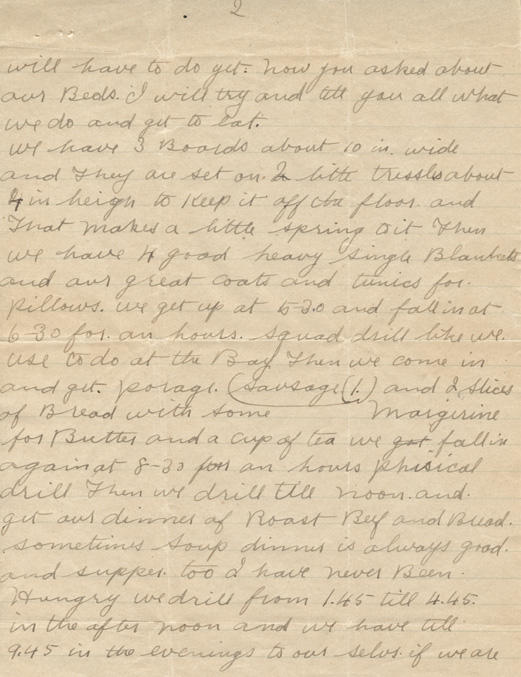 2
will have to do yet. now you asked about
our Beds. I will try and tell you all what
we do and get to eat.
we have 3 Boards about 10 in. wide
and They are set on 2 little tressls about
4 in heigh to Keep it off the floor. and
That makes a little spring to it Then
we have 4 good heavy single Blankets
and our great coats and tunics for.
pillows. we get up at 5-30 and fall in at
6-30 for. an hours. squad drill like we.
use to do at the Bay. Then we come in
and get. porage. (sausage (1.) and 2 slices
of Bread with some Margerine
for Butter and a cup of tea we got fall in
again at 8-30 for an hours phisical
drill Then we drill till noon. and.
get our dinner of Roast Beef and Bread.
sometimes soup dinner is always good.
and supper. too I have never Been.
Hungry we drill from 1.45 till 4.45.
in the after noon and we have till
9.45 in the evenings to our selvs. if we are